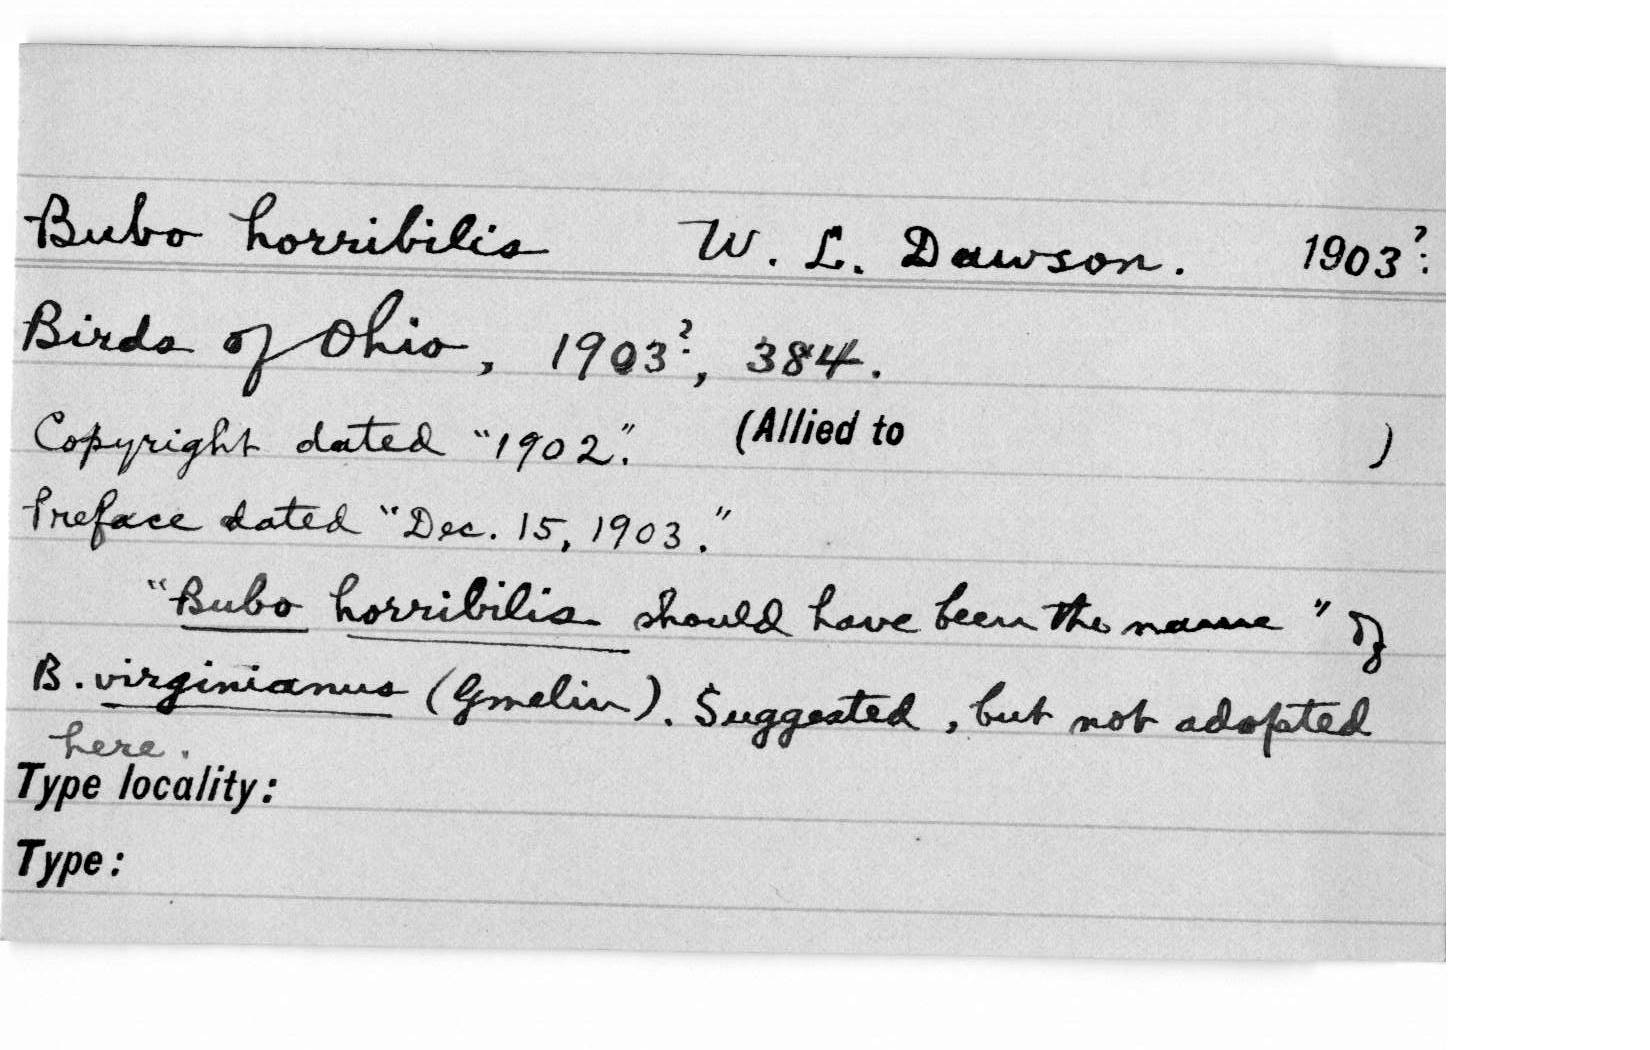 Bubo horribilis W. L. Dawson. 1903?.
Birds of Ohio, 1903?, 384.
Copyright dated "1902". (Allied to )
Preface dated "Dec. 15, 1903."
"Bubo horribilis should have been the name" of
B. virginianus (Gmelin). Suggested, but not adopted
here.
Type locality:
Type: